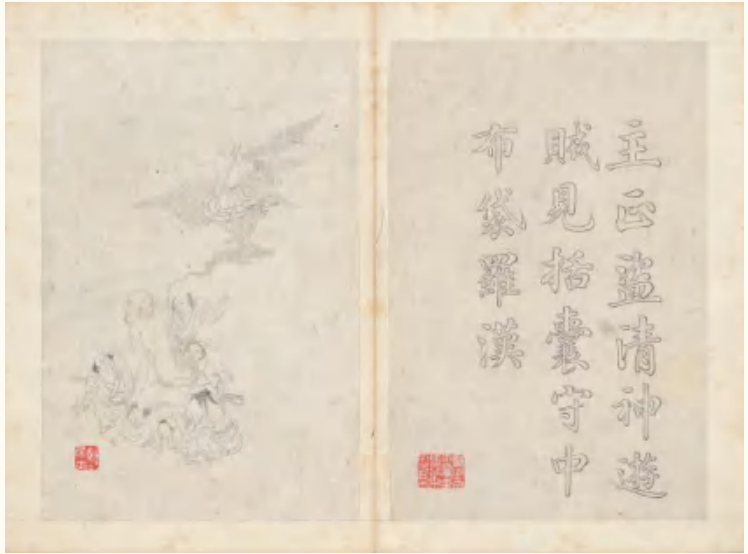 主正盜清神遊
賊見括囊守中
布袋羅漢